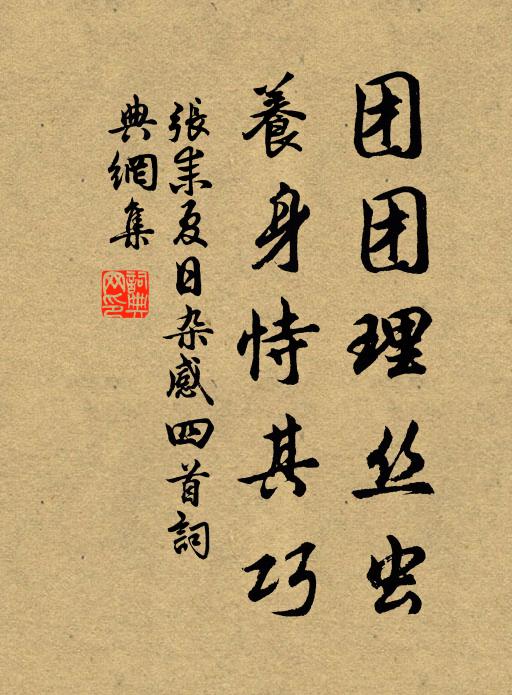 团团理丝虫
養身恃其巧
張耒夏日杂感四首詞
典網集
詞典网印